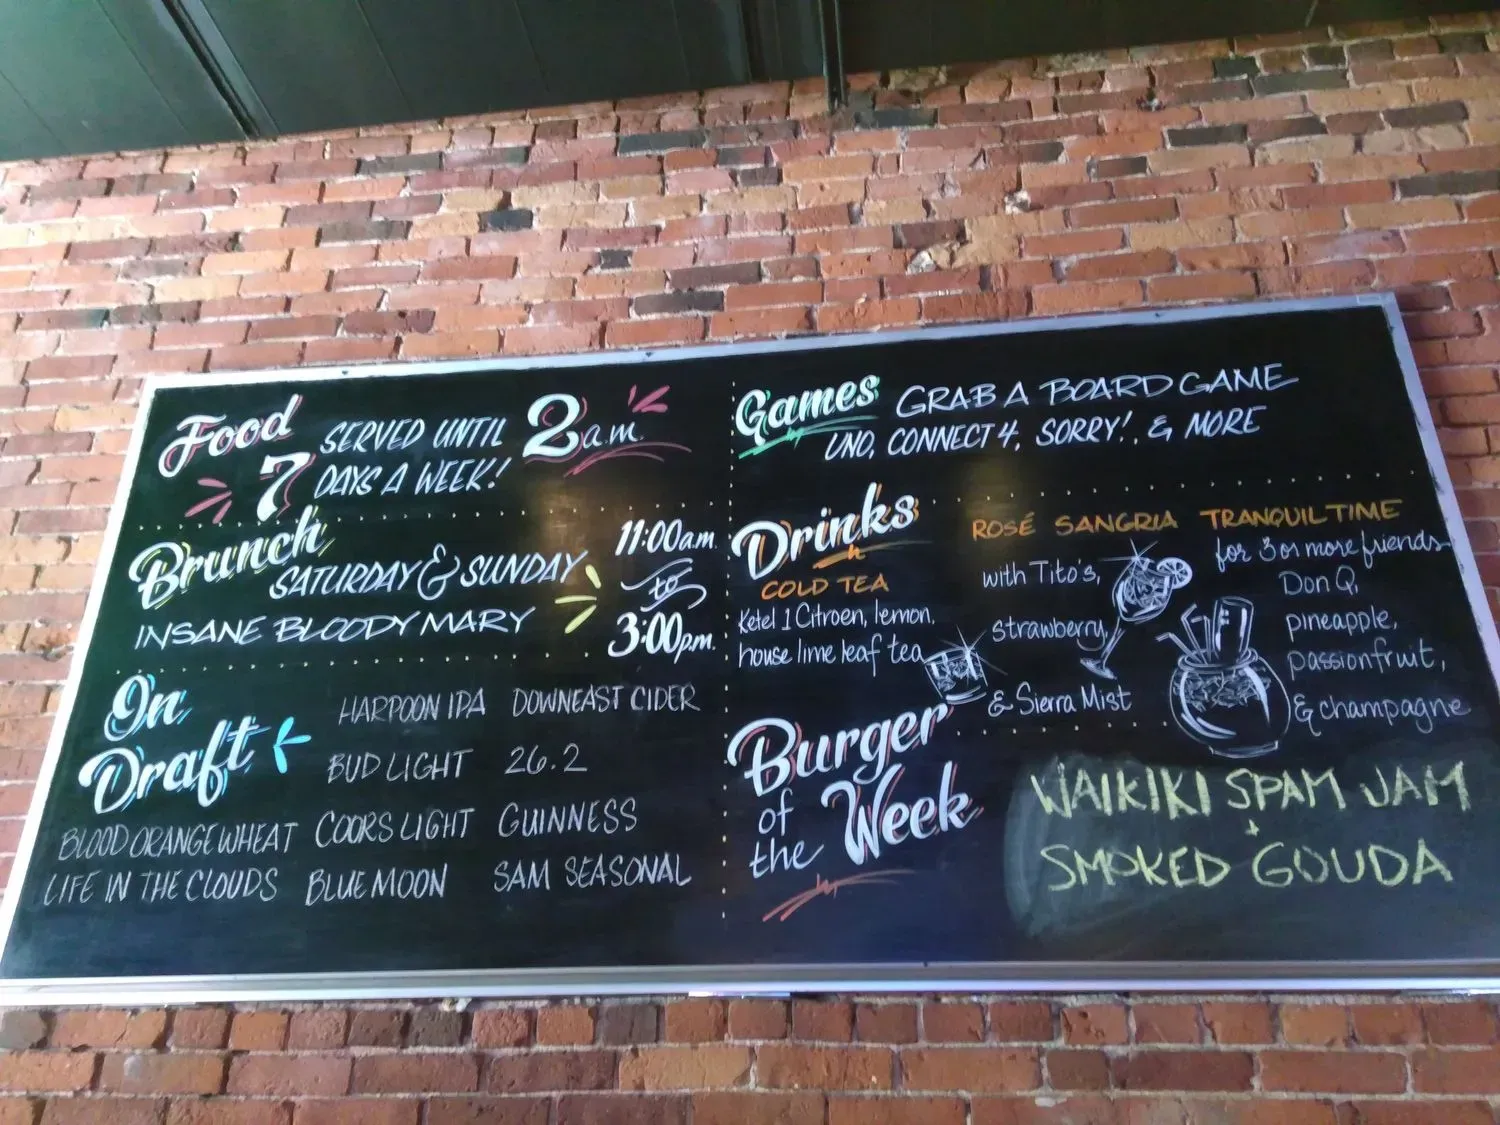 Food SERVED UNTIL 2 a.m.
7 DAYS A WEEK!
Brunch
SATURDAY & SUNDAY
INSANE BLOODY MARY
11:00am.
to
3:00p.m.
On
Draft
HARPOON IPA DOWNEAST CIDER
BUD LIGHT 26.2
BLOOD ORANGE WHEAT COORS LIGHT GUINNESS
LIFE IN THE CLOUDS BLUE MOON SAM SEASONAL
Games GRAB A BOARD GAME
UNO, CONNECT 4, SORRY!, & MORE
Drinks
COLD TEA
Ketel 1 Citroen, lemon,
house lime leaf tea
ROSÉ SANGRIA
with Tito's,
strawberry,
& Sierra Mist
TRANQUIL TIME
for 3 or more friends
Don Q,
pineapple,
passionfruit,
& champagne
Burger
of
the Week
WAIKIKI SPAM JAM
+
SMOKED GOUDA